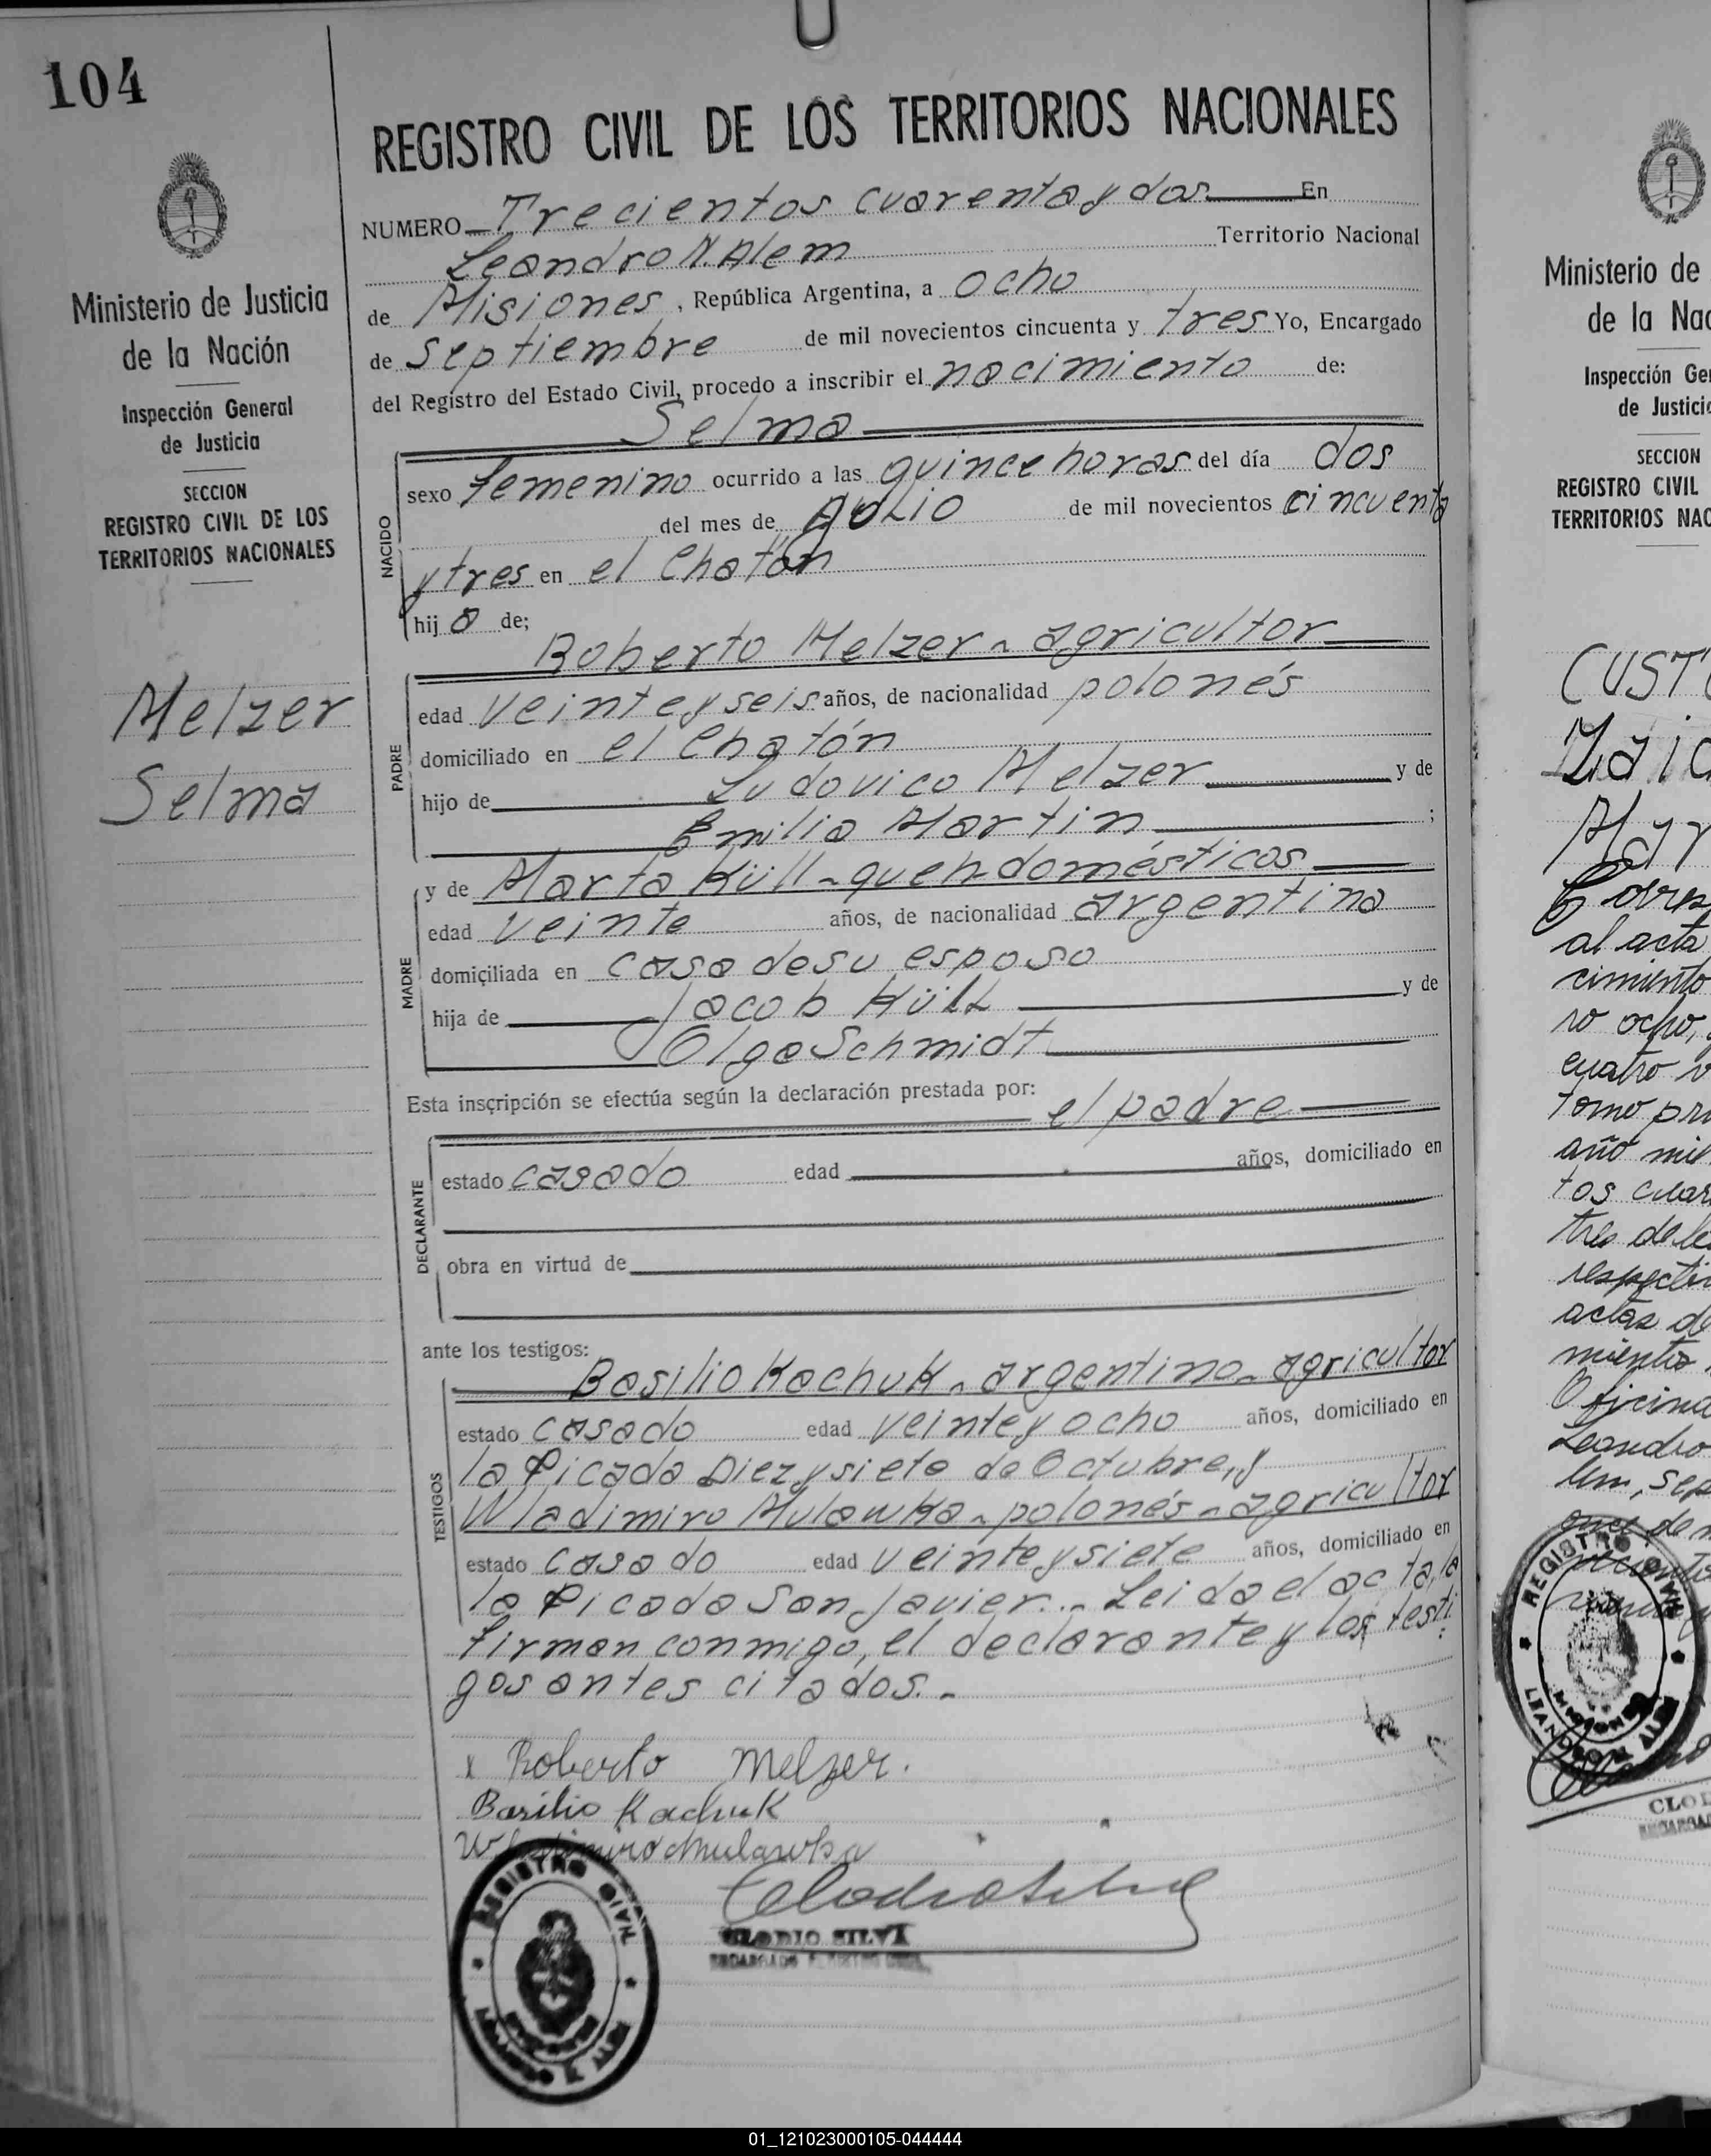 104
REGISTRO CIVIL DE LOS TERRITORIOS NACIONALES
NUMERO Trecientos cuarenta y dos En
Leandro N. Alem Territorio Nacional
de Misiones, República Argentina, a ocho
de septiembre de mil novecientos cincuenta y tres Yo, Encargado
del Registro del Estado Civil, procedo a inscribir el nacimiento de:
Selma
NACIDO
sexo femenino ocurrido a las quince horas del día dos
del mes de julio de mil novecientos cincuenta
y tres en el Chatón
hij a de;
Roberto Melzer - agricultor
PADRE
edad veinte y seis años, de nacionalidad polonés
domiciliado en el Chatón
hijo de Ludovico Melzer y de
Emilia Martin ;
MADRE
y de Marta Küll - queh. domésticos
edad veinte años, de nacionalidad argentina
domiciliada en casa de su esposo
hija de Jacob Küll y de
Olga Schmidt
Esta inscripción se efectúa según la declaración prestada por: el padre
DECLARANTE
estado casado edad años, domiciliado en
obra en virtud de
ante los testigos:
TESTIGOS
Basilio Kachuk - argentino - agricultor
estado casado edad veinte y ocho años, domiciliado en
la Picada Diez y siete de Octubre, y
Wladimiro Mulawka - polonés - agricultor
estado casado edad veinte y siete años, domiciliado en
la Picada San Javier.- Leida el acta, la
firman conmigo, el declarante y los testi
gos antes citados.-
x Roberto Melzer.
Basilio Kachuk
Wladimiro Mulawka
Clodio Silva
CLODIO SILVA
ENCARGADO REGISTRO CIVIL
REGISTRO CIVIL
Ministerio de Justicia
de la Nación
Inspección General
de Justicia
SECCION
REGISTRO CIVIL DE LOS
TERRITORIOS NACIONALES
Melzer
Selma
Ministerio de
de la Nac
Inspección Ge
de Justici
SECCION
REGISTRO CIVIL
TERRITORIOS NAC
CUST
Mar
Corres
al acta
cimiento
ro ocho,
cuatro v
tomo pri
año mil
tos cuar
tres de
respecti
actas de
miento
Oficina
Leandro
lem, sep
REGISTRO CIVIL
MISIONES
CLO
ENCARGA
01_121023000105-044444